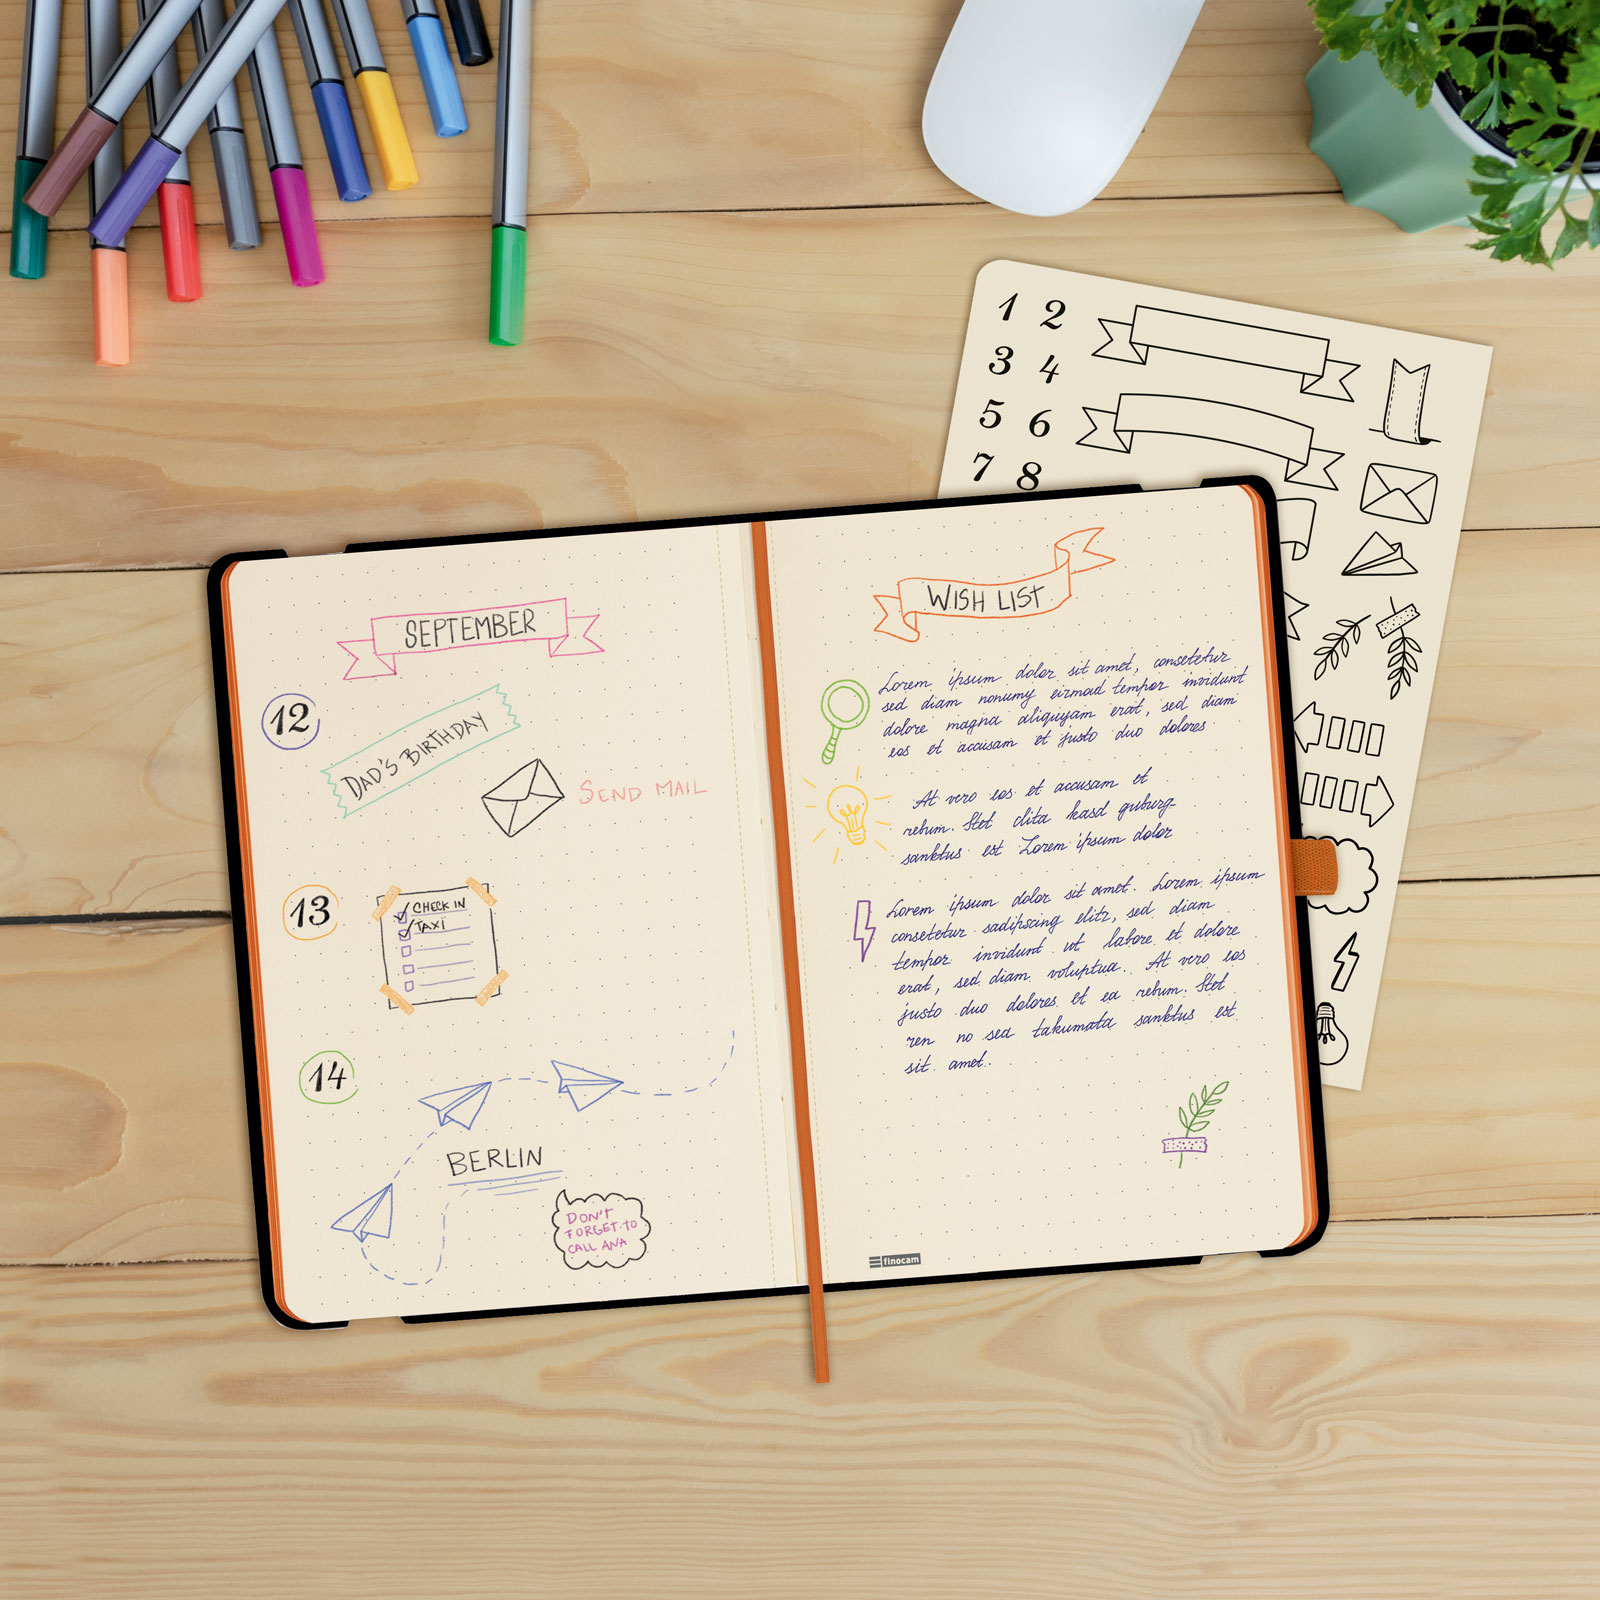 1 2
3 4
5 6
7 8
SEPTEMBER
12
DAD'S BIRTHDAY
SEND MAIL
13
CHECK IN
TAXI
14
BERLIN
DON'T
FORGET TO
CALL ANA
WISH LIST
Lorem ipsum dolor sit amet, consetetur
sed diam nonumy eirmod tempor invidunt
dolore magna aliquyam erat, sed diam
eos et accusam et justo duo dolores
At vero eos et accusam et
rebum. Stet clita kasd guburg-
sanktus est Lorem ipsum dolor
Lorem ipsum dolor sit amet. Lorem ipsum
consetetur sadipscing elitr, sed diam
tempor invidunt ut labore et dolore
erat, sed diam voluptua. At vero eos
justo duo dolores et ea rebum. Stet
ren no sea takumata sanktus est
sit amet.
finocam